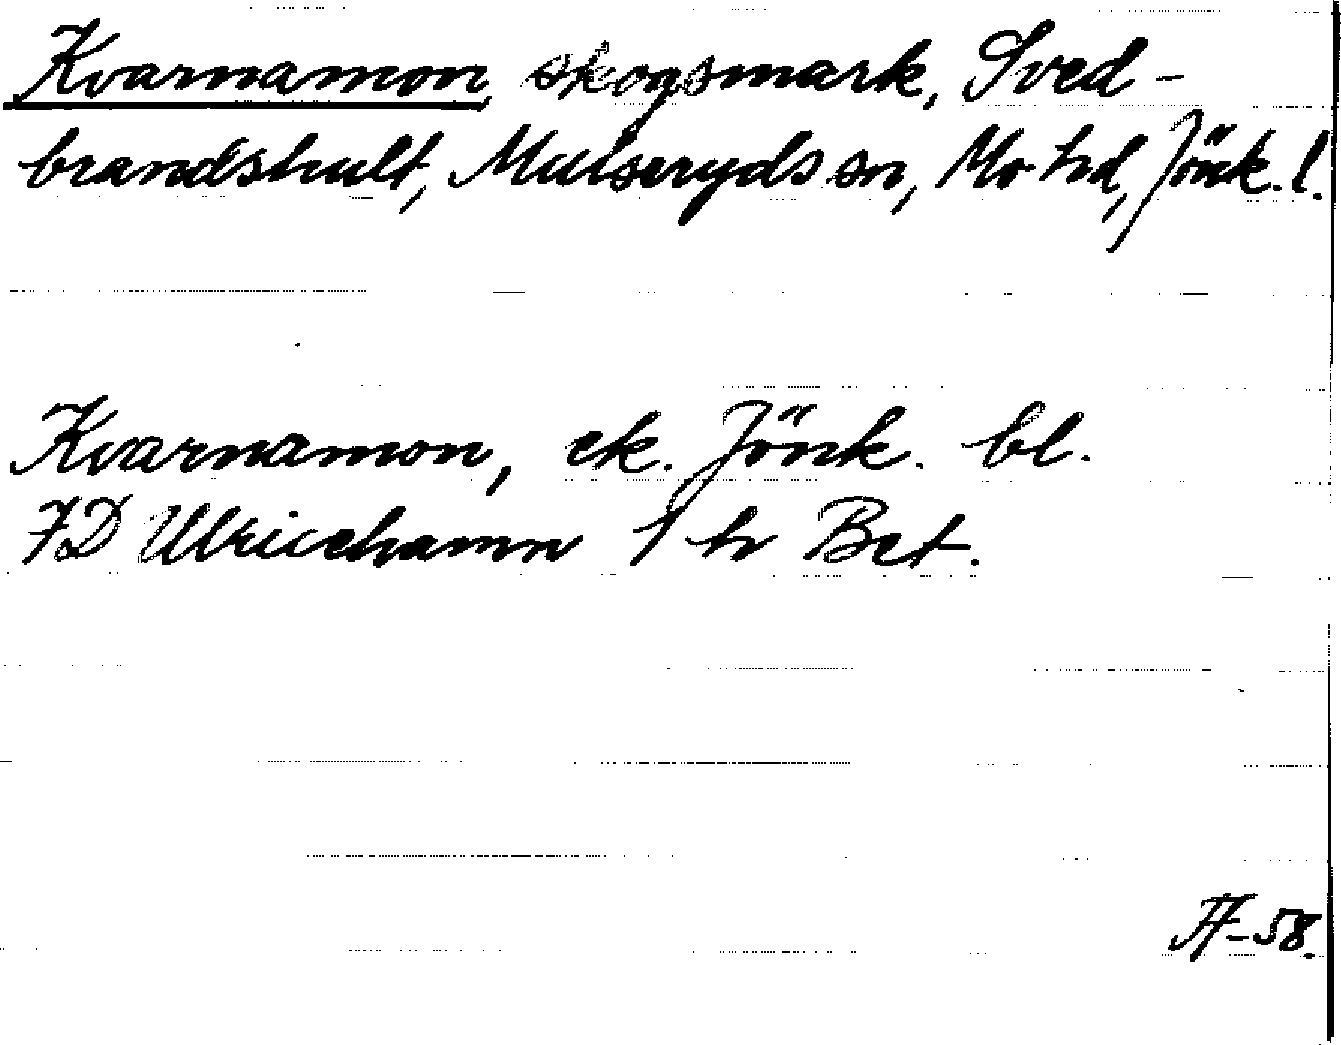 Kvarnamon, skogsmark, Sved-
brandshult, Mulseryds sn, Mo hd, Jönk. l.
Kvarnamon, ek. Jönk. bl.
7D Ulricehamn 1 h Bet.
-58.